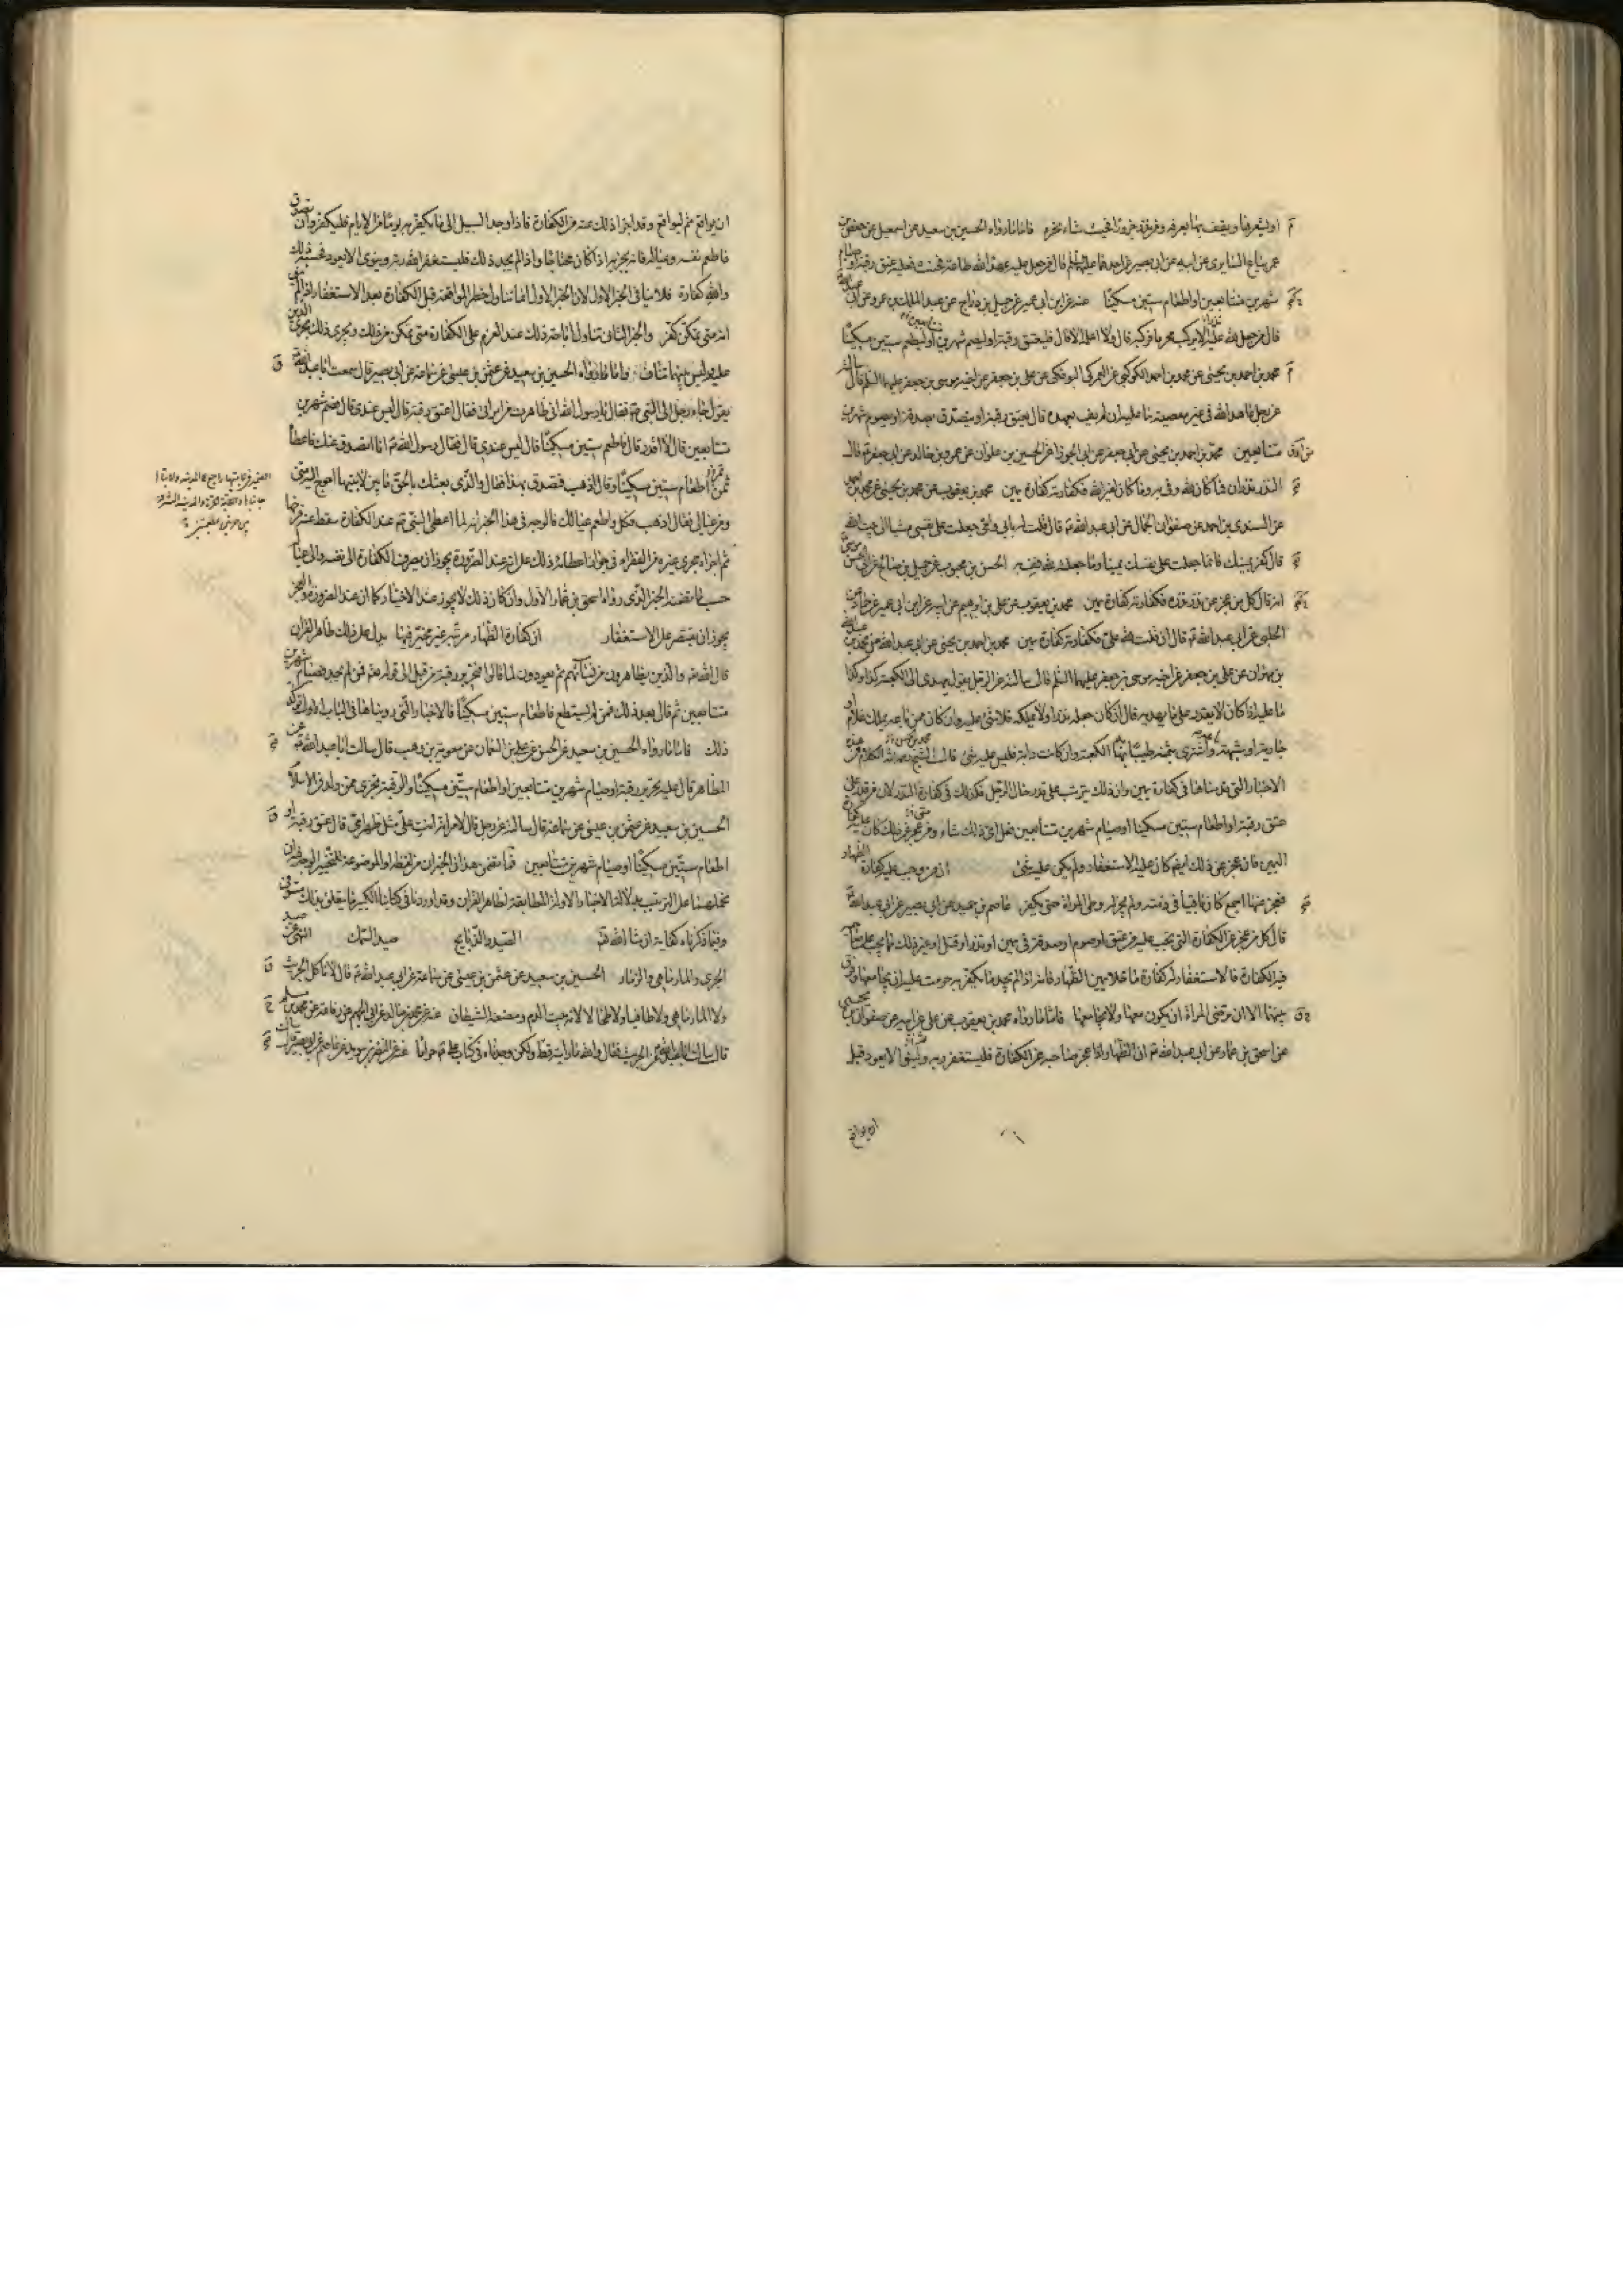 او يشعرها ويقف بها بعرفة ومن نذر جزورا فحيث شاء نحره فاما ما رواه الحسين بن سعيد عن اسمعيل عن حفص بن
عمر بياع السابري عن ابيه عن ابي بصير عن احدهما عليهما السلم قال من جعل عليه عهد الله طاعة فحنث فعليه عتق رقبة او صيام
شهرين متتابعين او اطعام ستين مسكينا عنه عن ابن ابي عمير عن جميل بن دراج عن عبد الملك بن عمرو عن ابي عبد الله
قال من جعل لله عليه الا يركب محرما فركبه قال ولا اعلمه الا قال فليعتق رقبة او ليصم شهرين او ليطعم ستين مسكينا
محمد بن احمد بن يحيى عن محمد بن احمد الكوكبي عن العمركي البوفكي عن علي بن جعفر عن اخيه موسى بن جعفر عليهما السلم قال سالته
عن رجل عاهد الله في غير معصية ما عليه ان لم يف بعهده قال يعتق رقبة او يتصدق بصدقة او يصوم شهرين
متتابعين محمد بن احمد بن يحيى عن ابي جعفر عن ابي الجوزا عن الحسين بن علوان عن عمرو بن خالد عن ابي جعفر قال
النذر نذران فما كان لله وفى به وما كان لغير الله فكفارته كفارة يمين محمد بن يعقوب عن محمد بن يحيى عن محمد بن احمد
عن السندي بن محمد عن صفوان الجمال عن ابي عبد الله قال قلت له بابي وامي جعلت على نفسي مشيا الى بيت الله
قال كفر يمينك فانما جعلت على نفسك يمينا وما جعلته لله فف به الحسن بن محبوب عن جميل بن صالح عن ابي الحسن موسى
انه قال كل من عجز عن نذر نذره فكفارته كفارة يمين محمد بن يعقوب عن علي بن ابرهيم عن ابيه عن ابن ابي عمير عن حماد عن
الحلبي عن ابي عبد الله قال ان قلت لله علي فكفارته كفارة يمين محمد بن احمد بن يحيى عن ابي عبد الله عن محمد بن عبد الله
بن مهران عن علي بن جعفر عن اخيه موسى بن جعفر عليهما السلم قال سالته عن الرجل يقول هو يهدى الى الكعبة كذا وكذا
ما عليه اذا كان لا يقدر على ما يهديه قال ان كان جعله نذرا ولا يملكه فلا شئ عليه وان كان مما يملك غلام او
جارية او شبهه باعه واشترى بثمنه طيبا يطيب بها الكعبة وان كانت دابة فليس عليه شئ قال الشيخ رحمه الله الكلام في هذه
الاخبار التي قدمناها في كفارة يمين وان ذلك يترتب على قدر حال الرجل فكذلك في كفارة النذر لان من قدر على
عتق رقبة او اطعام ستين مسكينا او صيام شهرين متتابعين فعل اي ذلك شاء ومن عجز عن ذلك كان عليه كفارة
اليمين فان عجز عن ذلك ايضا كان عليه الاستغفار ولم يكن عليه شئ ان من وجب عليه كفارة الظهار
فعجز عنها اجمع كان باقيا في ذمته ولم يجز له وطى المراة حتى يكفر عاصم بن حميد عن ابي بصير عن ابي عبد الله
قال كل من عجز عن الكفارة التي تجب عليه من عتق او صوم او صدقة في يمين او نذر او قتل او غير ذلك مما يجب على صاحبه
فيه الكفارة فالاستغفار له كفارة ما خلا يمين الظهار فانه اذا لم يجد ما يكفر به حرمت عليه ان يجامعها وفرق
بينهما الا ان ترضى المراة ان يكون معها ولا يجامعها فاما ما رواه محمد بن يعقوب عن علي عن ابيه عن صفوان بن يحيى
عن اسحق بن عمار عن ابي عبد الله ان الظهار اذا عجز صاحبه عن الكفارة فليستغفر ربه ولينو الا يعود قبل
ان يواقع
ان يواقع ثم ليواقع وقد اجزا ذلك عنه من الكفارة فاذا وجد السبيل الى ما يكفر به يوما من الايام فليكفر وان تصدق
فاطعم نفسه وعياله فانه يجزيه اذا كان محتاجا واذا لم يجد ذلك فليستغفر الله ربه وينوي الا يعود فحسبه ذلك
والله كفارة فلا ينافي الخبر الاول لان الخبر الاول انما تناول حظر المواقعة قبل الكفارة بعد الاستغفار اذا لم ينو
انه متى تمكن كفر والخبر الثاني تناول اباحة ذلك عند العزم على الكفارة متى تمكن من ذلك ويجري ذلك مجرى الدين
عليه وليس بينهما تناف واما ما رواه الحسين بن سعيد عن عثمن بن عيسى عن سماعة عن ابي بصير قال سمعت ابا عبد الله
يقول جاء رجل الى النبي فقال يا رسول الله اني ظاهرت من امراتي فقال اعتق رقبة قال ليس عندي قال فصم شهرين
متتابعين قال لا اقدر قال فاطعم ستين مسكينا قال ليس عندي قال فقال رسول الله انا اتصدق عنك فاعطاه
ثمن اطعام ستين مسكينا وقال اذهب فتصدق بهذا فقال والذي بعثك بالحق ما بين لابتيها احوج اليه مني
ومن عيالي فقال اذهب فكل واطعم عيالك فالوجه في هذا الخبر انه لما اعطى النبي ثمن الكفارة سقط عنه فرضها
ثم اجراه مجرى غيره من الفقراء في جواز اعطائه ذلك على انه عند الضرورة يجوز ان يصرف الكفارة الى نفسه والى عياله
حسب ما تضمنه الخبر الذي رواه اسحق بن عمار الاول وان كان ذلك لا يجوز عند الاختيار كما ان عند الضرورة والعجز
يجوز ان يقتصر على الاستغفار ان كفارة الظهار مرتبة غير مخير فيها يدل على ذلك ظاهر القران
قال الله والذين يظاهرون من نسائهم ثم يعودون لما قالوا فتحرير رقبة من قبل الى قوله فمن لم يجد فصيام شهرين
متتابعين ثم قال بعد ذلك فمن لم يستطع فاطعام ستين مسكينا فالاخبار التي رويناها في الباب الاول تؤكد
ذلك فاما ما رواه الحسين بن سعيد عن الحسن عن علي بن النعمان عن معوية بن وهب قال سالت ابا عبد الله عن
المظاهر قال عليه تحرير رقبة او صيام شهرين متتابعين او اطعام ستين مسكينا والرقبة تجزي ممن ولد في الاسلام
الحسين بن سعيد عن عثمن بن عيسى عن سماعة قال سالته عن رجل قال لامراته انت علي مثل ظهر امي قال عتق رقبة او
اطعام ستين مسكينا او صيام شهرين متتابعين فما تضمن هذان الخبران من لفظ او الموضوعة للتخيير الوجه فيه ان
نحملهما على الترتيب بدلالة الاخبار الاولة المطابقة لظاهر القران وقد اوردنا في كتابنا الكبير ما يتعلق بذلك مستوفى
وفيما ذكرناه كفاية ان شاء الله الصيد والذبايح صيد السمك النهي عن صيد
الجري والمارماهي والزمار الحسين بن سعيد عن عثمن بن عيسى عن سماعة عن ابي عبد الله قال لا تاكل الجريث
ولا المارماهي ولا طافيا ولا طحالا لانه بيت الدم ومضغة الشيطان عنه عن محمد بن خالد عن ابي الجهم عن رفاعة عن محمد بن مسلم
قال سالت ابا عبد الله عن الجريث فقال والله ما رايته قط ولكن وجدناه في كتاب علي حراما عنه عن النضر بن سويد عن عاصم عن ابي بصير قال سالت